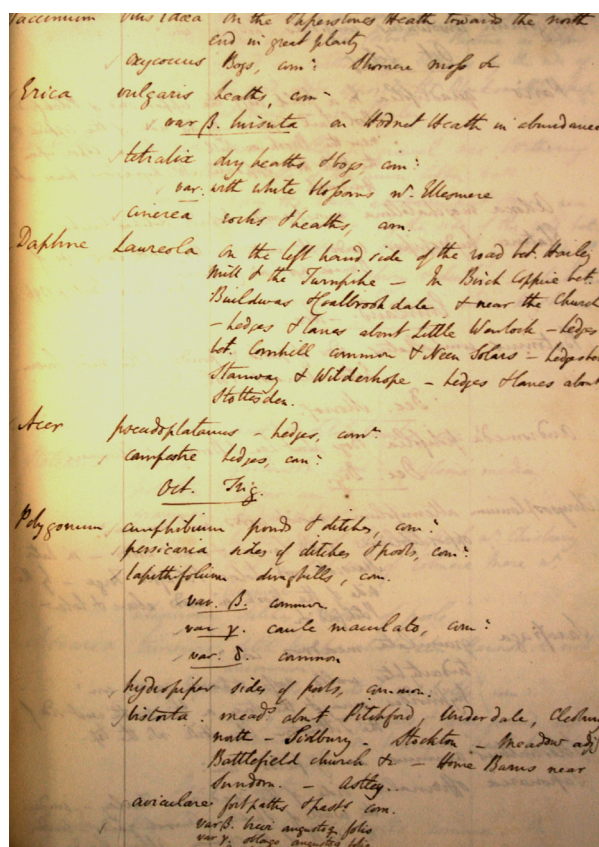 Vaccinium vitis Idaea on the Vaperstones Heath towards the north
end in great plenty
oxycoccus Bogs, com: Shomere moss &
Erica vulgaris heaths, com
var β. hirsuta on Hodnet Heath in abundance
tetralix dry heaths & bogs, com:
var. with white blossoms nr. Ellesmere
cinerea rocks & heaths, com.
Daphne Laureola on the left hand side of the road bet. Harley
Mill & the Turnpike – In Birch Coppice bet.
Buildwas & Coalbrookdale & near the Church
– hedges & lanes about Little Wenlock – hedges
bet. Cornhill common & Neen Solars – hedges bet
Stanway & Wilderhope – hedges & lanes about
Stottesden.
Acer pseudoplatanus – hedges, com:
campestre hedges, com:
Oct. Trig.
Polygonum amphibium ponds & ditches, com:
persicaria sides of ditches & pools, com:
lapathifolium dunghills, com.
var. β. common
var γ. caule maculato, com:
var. δ. common
hydropiper sides of pools, common.
bistorta. mead.s about Pitchford, Underdale,
north – Sidbury – Stockton – Meadow adj
Battlefield church & – Home Barns near
Sundorn. – Astley.
aviculare footpaths & past.s com.
var β. brevi angustoq folio
var γ. oblongo angustoq folio